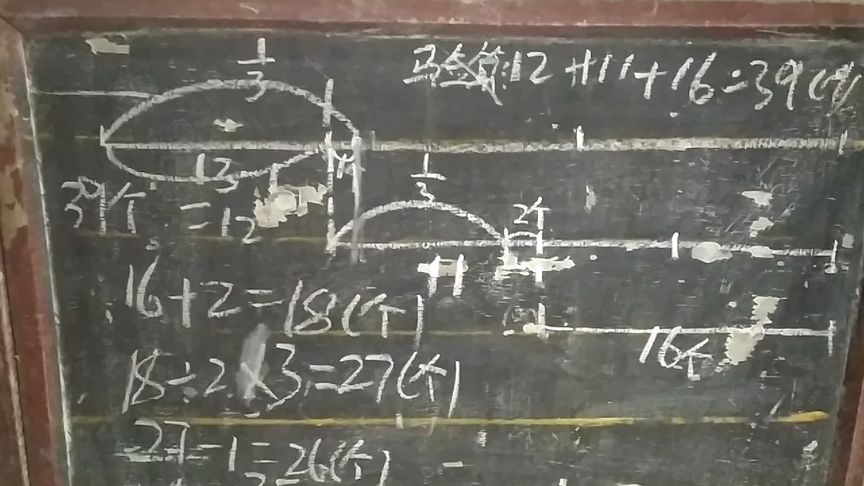 1/3
验算:12+11+16=39(个)
13
1个
1/3
39个
=12
2个
11
16+2=18(个)
16个
18÷2×3=27(个)
27-1=26(个)